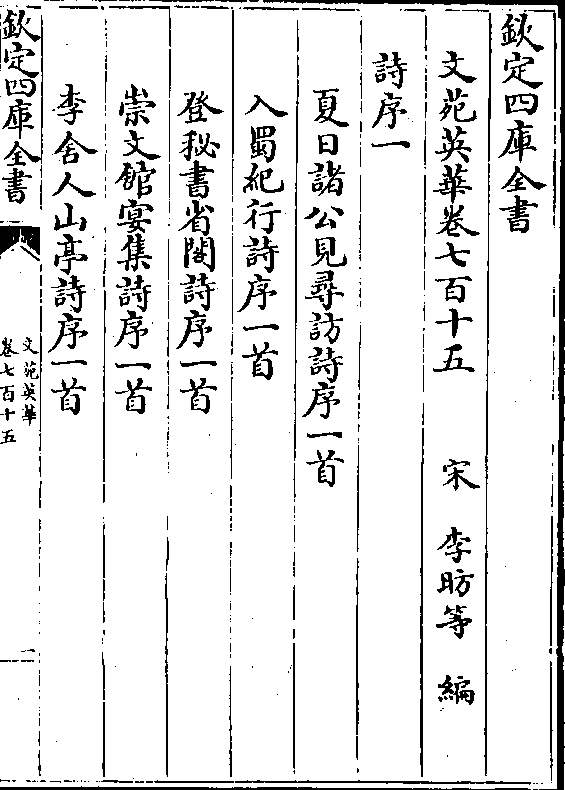 欽定四庫全書
文苑英華卷七百十五　宋　李昉等　編
詩序一
夏日諸公見尋訪詩序一首
入蜀紀行詩序一首
登秘書省閣詩序一首
崇文館宴集詩序一首
李舍人山亭詩序一首
欽定四庫全書
文苑英華
卷七百十五
一